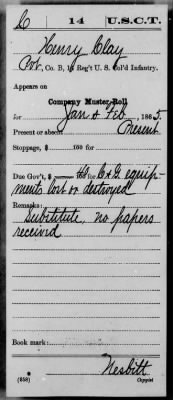 C 14 U.S.C.T.
Henry Clay
Pvt, Co. B, 14 Reg't U. S. Col'd Infantry.
Appears on
Company Muster Roll
for Jan & Feb, 1865.
Present or absent Present
Stoppage, $ 100 for
Due Gov't, $ 100 for C & G equip-
ments lost or destroyed
Remarks:
Substitute, no papers
received
Book mark:
Nesbitt
(358) Copyist